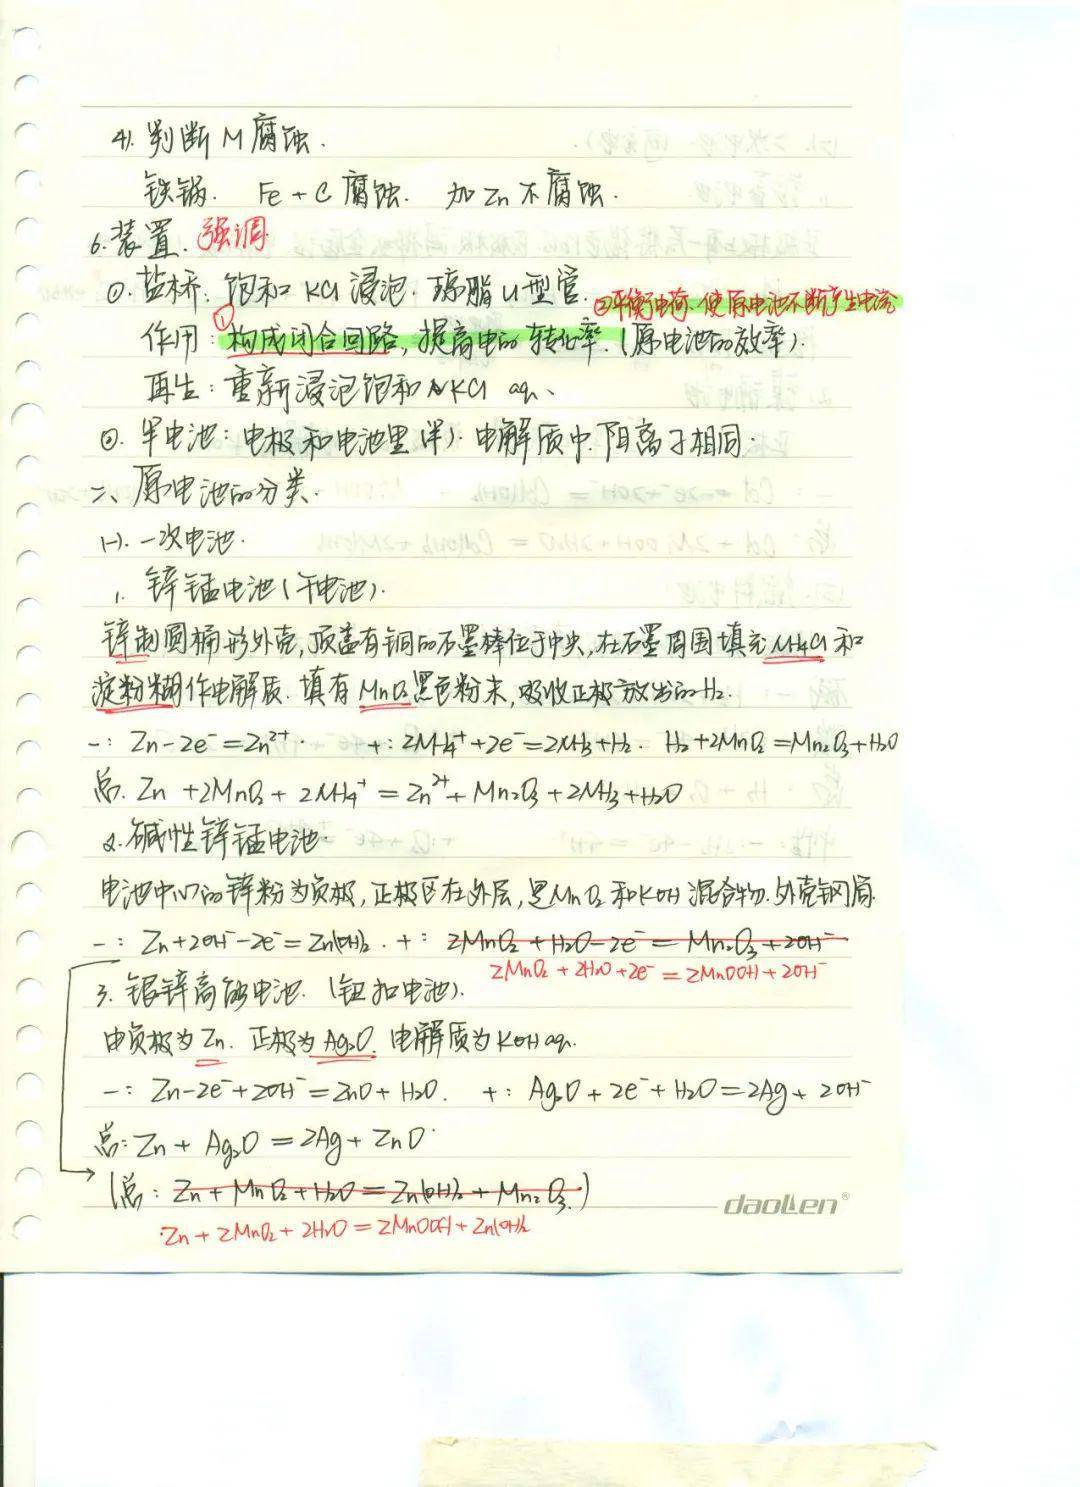 4). 判断M腐蚀.
铁锅. Fe+C腐蚀. 加Zn不腐蚀.
6.装置. 强调
①. 盐桥: 饱和KCl浸泡. 琼脂U型管. ②平衡电荷.使原电池不断产生电流
作用: ①构成闭合回路, 提高电的转化率.(原电池的效率).
再生: 重新浸泡饱和KCl aq.
②. 半电池: 电极和电池里(半). 电解质中.阳离子相同.
二、原电池的分类.
(一). 一次电池.
1. 锌锰电池(干电池).
锌制圆桶形外壳,顶盖有铜的石墨棒位于中央,在石墨周围填充NH₄Cl和
淀粉糊作电解质. 填有MnO₂黑色粉末,吸收正极放出的H₂.
-: Zn-2e⁻=Zn²⁺. +: 2NH₄⁺+2e⁻=2NH₃+H₂. H₂+2MnO₂=Mn₂O₃+H₂O
总. Zn+2MnO₂+2NH₄⁺=Zn²⁺+Mn₂O₃+2NH₃+H₂O
2.碱性锌锰电池.
电池中心的锌粉为负极,正极区在外层,是MnO₂和KOH混合物.外壳钢筒.
-: Zn+2OH⁻-2e⁻=Zn(OH)₂. +: 2MnO₂+H₂O-2e⁻=Mn₂O₃+2OH⁻
2MnO₂+2H₂O+2e⁻=2MnOOH+2OH⁻
3. 银锌高能电池.(钮扣电池).
由负极为Zn. 正极为Ag₂O. 电解质为KOH aq.
-: Zn-2e⁻+2OH⁻=ZnO+H₂O. +: Ag₂O+2e⁻+H₂O=2Ag+2OH⁻
总: Zn+Ag₂O=2Ag+ZnO.
(总: Zn+MnO₂+H₂O=Zn(OH)₂+Mn₂O₃.)
daolen®
Zn+2MnO₂+2H₂O=2MnOOH+Zn(OH)₂